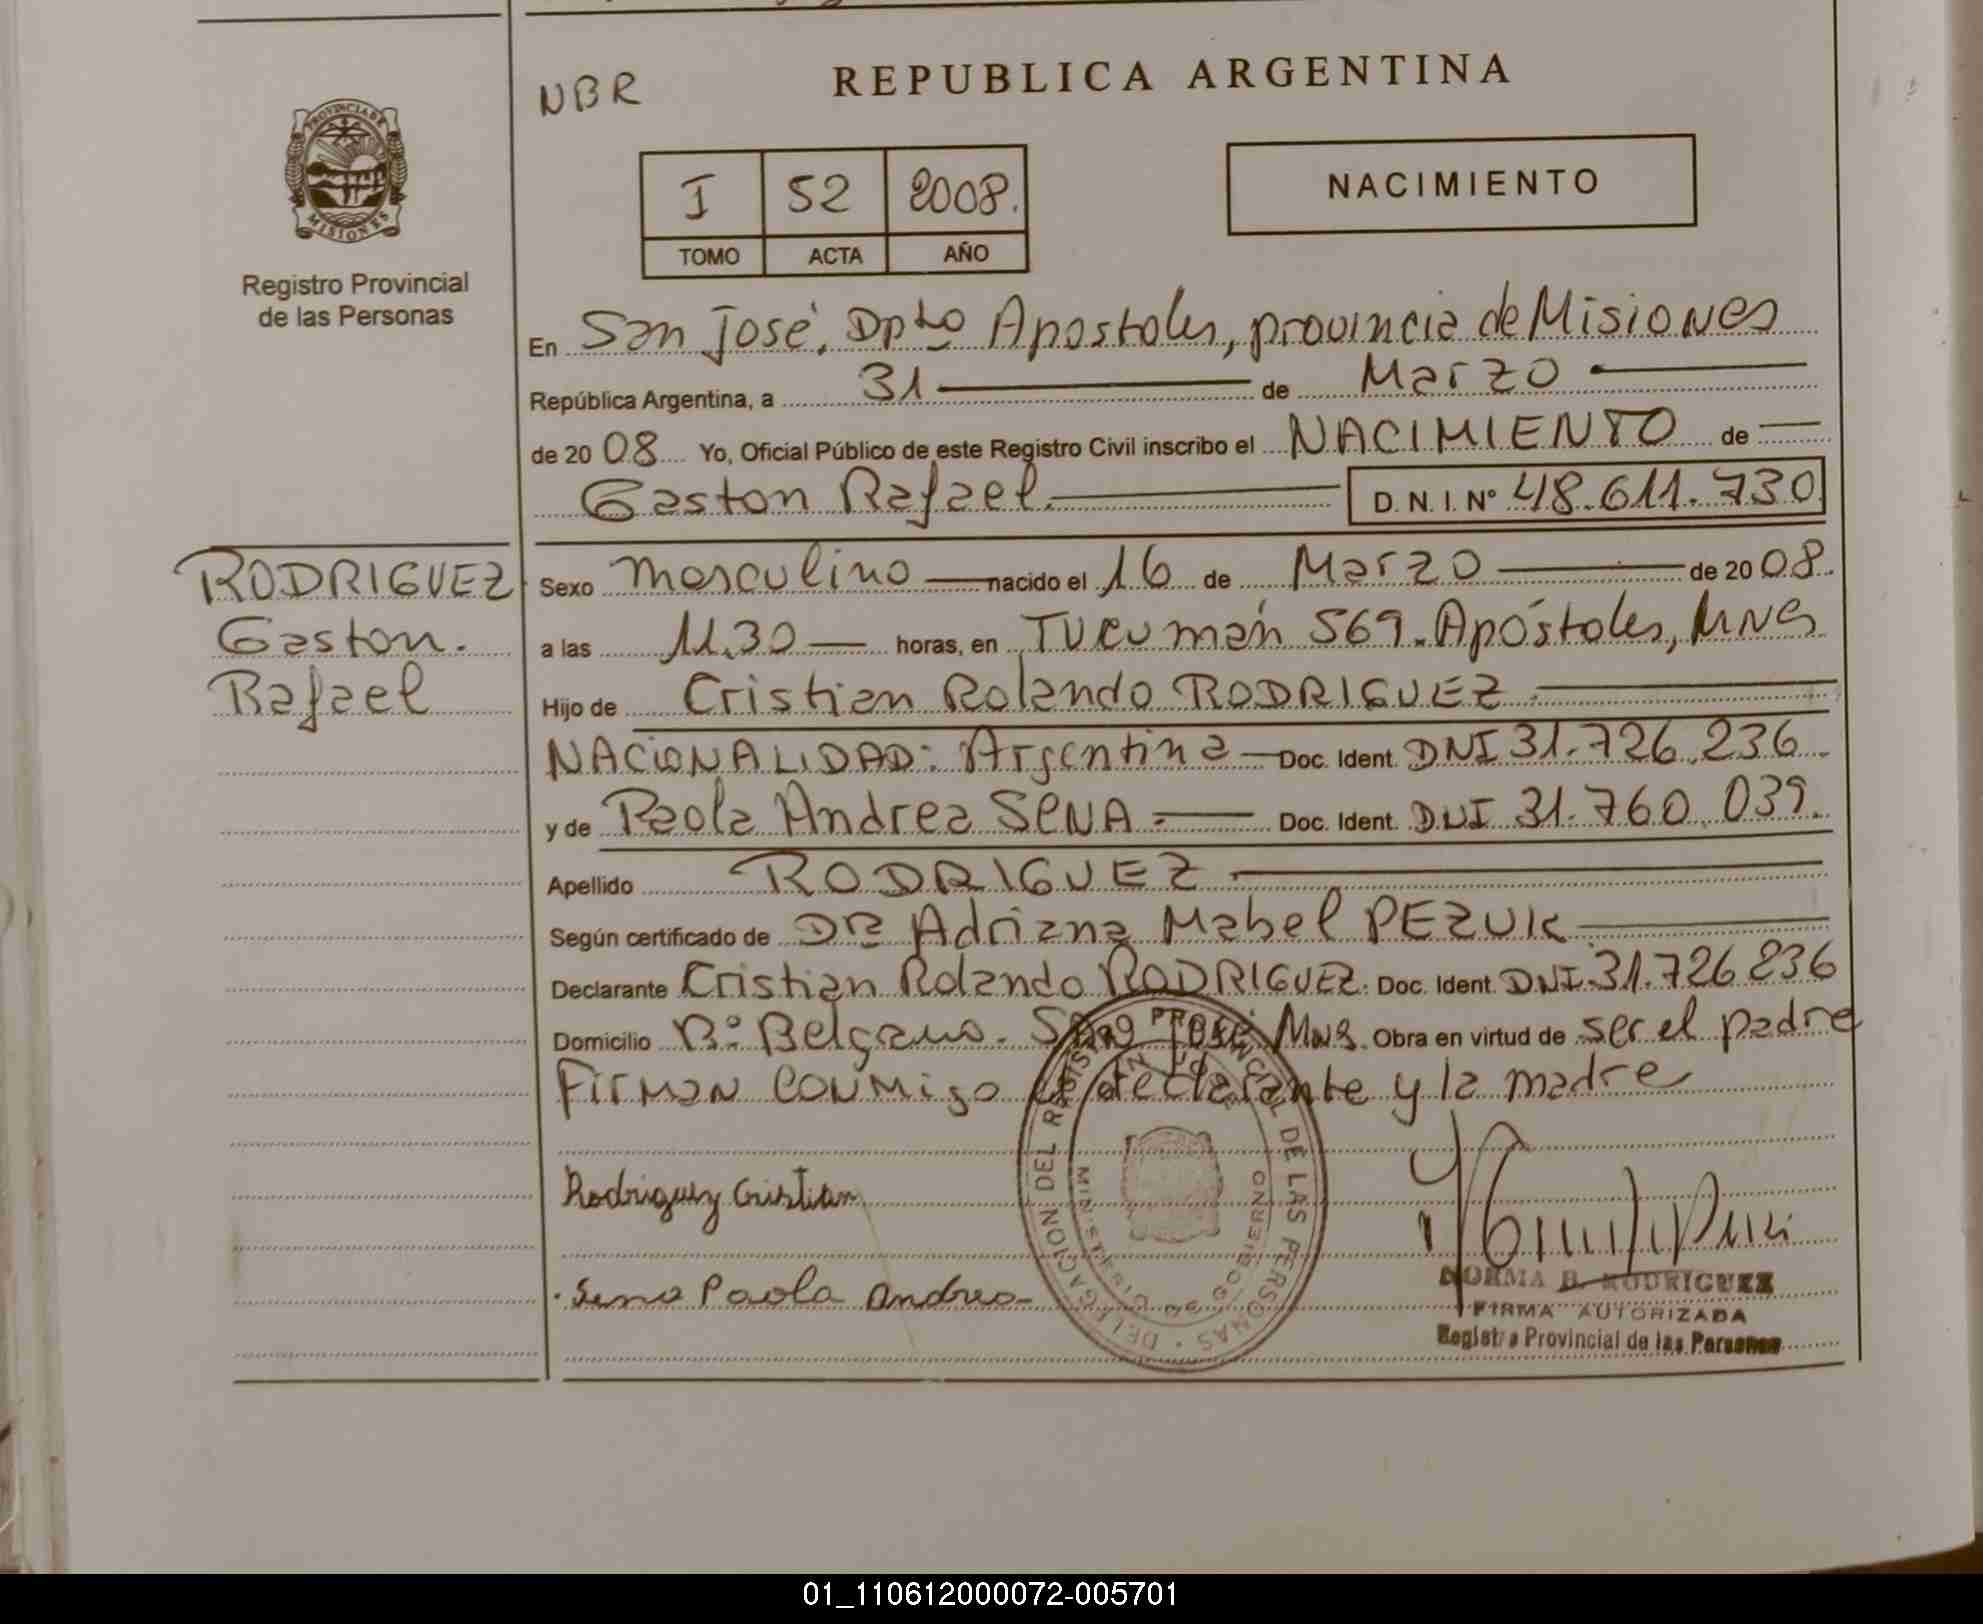 NBR
REPUBLICA ARGENTINA
PROVINCIA DE
MISIONES
Registro Provincial
de las Personas
I 52 2008.
TOMO ACTA AÑO
NACIMIENTO
En San José, Dpto Apostoles, provincia de Misiones
República Argentina, a 31 de Marzo
de 2008 Yo, Oficial Público de este Registro Civil inscribo el NACIMIENTO de
Gaston Rafael. D. N. I. N° 48.611.730
RODRIGUEZ
Gaston.
Rafael
Sexo masculino nacido el 16 de Marzo de 2008.
a las 11.30 horas, en Tucumán 569. Apóstoles, Mnes
Hijo de Cristian Rolando RODRIGUEZ.
NACIONALIDAD: Argentina Doc. Ident. DNI 31.726.236.
y de Paola Andrea SENA. Doc. Ident. DNI 31.760.039.
Apellido RODRIGUEZ
Según certificado de Dra Adriana Mabel PEZUK
Declarante Cristian Rolando RODRIGUEZ. Doc. Ident. DNI.31.726.236
Domicilio B° Belgrano. San José Mns. Obra en virtud de ser el padre
Firman conmigo el declarante y la madre
Rodriguez Cristian
Sena Paola Andrea
DELEGACION DEL REGISTRO PROVINCIAL DE LAS PERSONAS
MINISTERIO DE GOBIERNO
NORMA B. RODRIGUEZ
FIRMA AUTORIZADA
Registro Provincial de las Personas
01_110612000072-005701